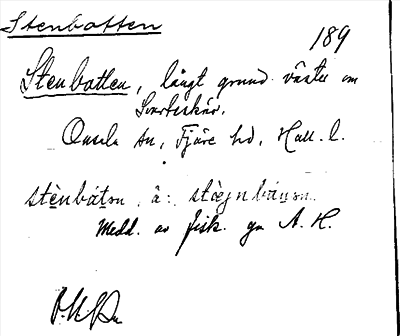 Stenbotten
189
Stenbotten, långt grund väster om
Svarteskär.
Onsala sn, Fjäre hd, Hall. l.
stènbátən, ä:
Medd. av fisk. gm A. H.